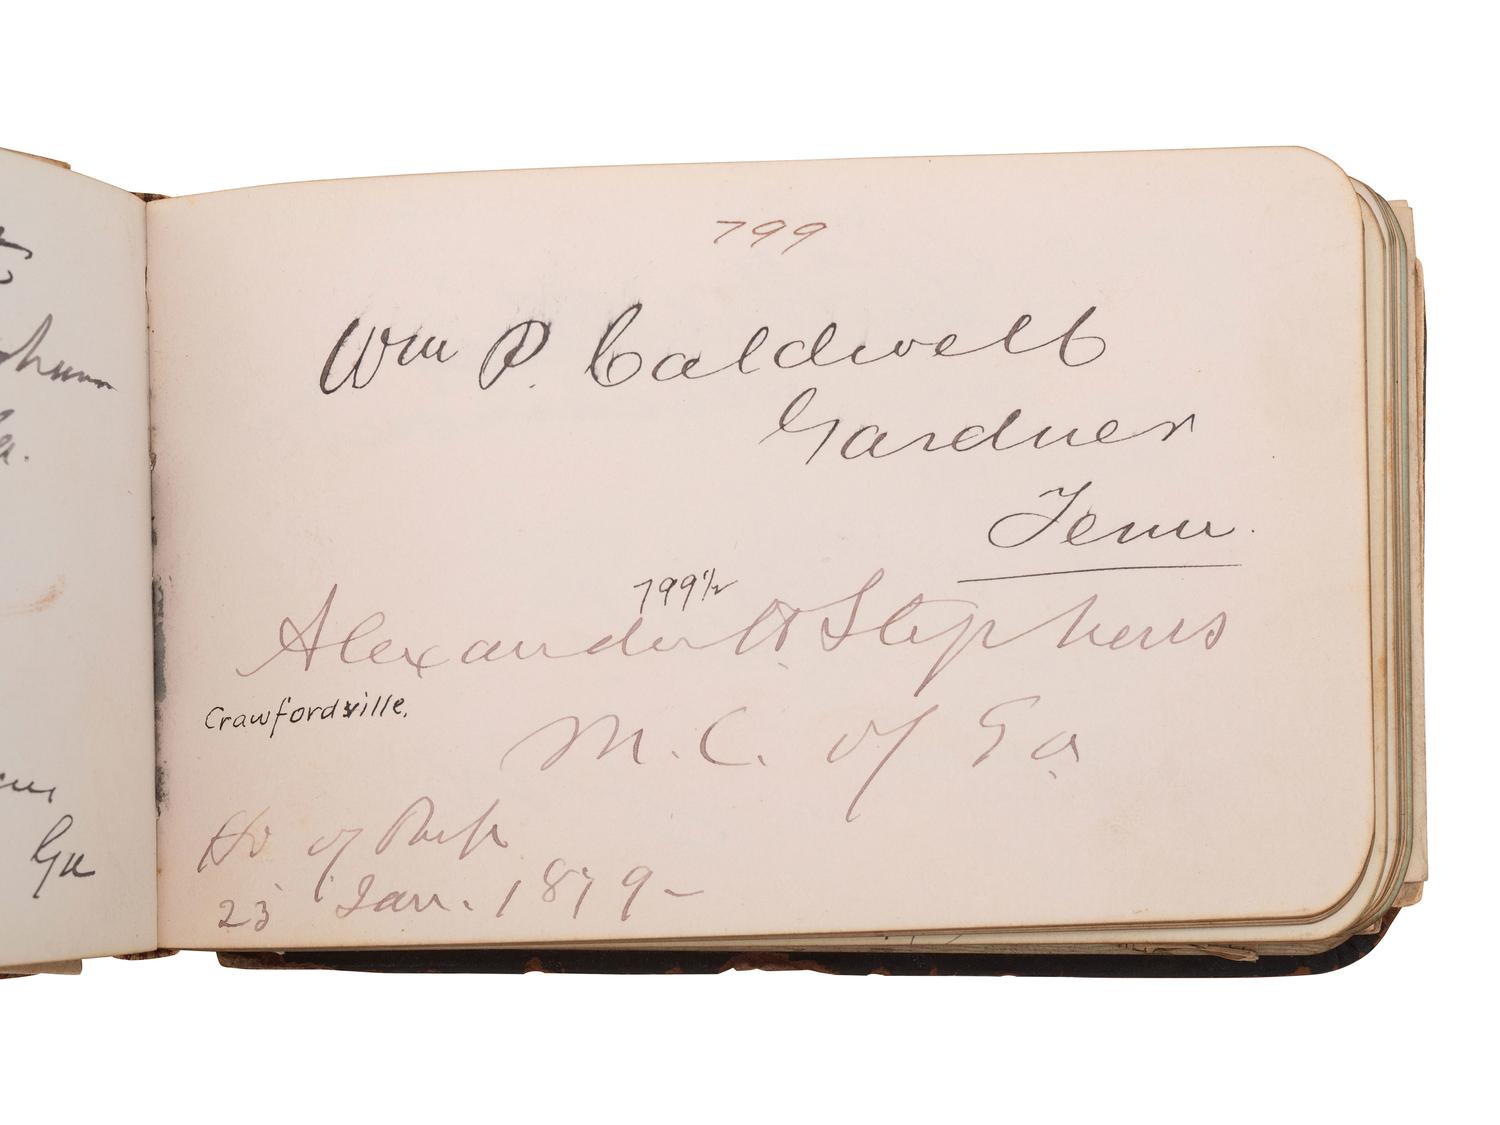 Ga
799
Wm P. Caldwell
Gardner
Tenn.
799½
Alexander H. Stephens
Crawfordville.
M.C. of Ga
Ho of Reps
23 Jan. 1879-